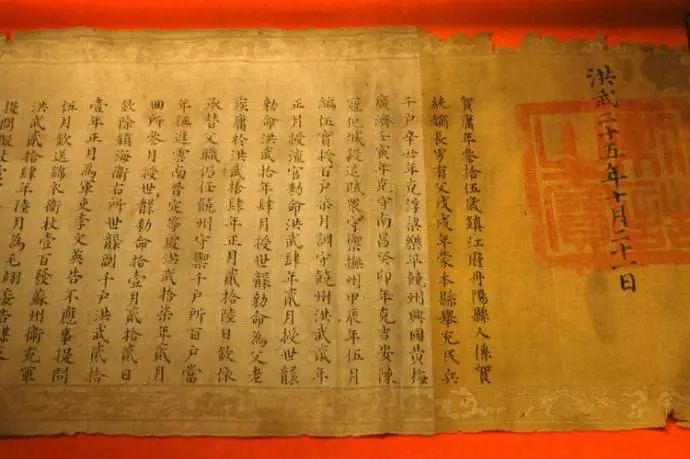 洪武二十五年十月二十一日
賀庸年叄拾伍歲鎮江府丹陽縣人係賀
純嫡長男有父戊戌年蒙本縣舉充民兵
千戶辛丑年克浮梁樂平饒州興國黃梅
廣濟壬寅年克守南昌癸卯年克吉安陳
寇犯城殺退賊眾守禦撫州甲辰年伍月
編伍實授百戶柒月調守饒州洪武貳年
正月授流官勅命洪武肆年貳月授世襲
勅命洪武拾年肆月授世襲勅命為父老
疾庸於洪武拾肆年正月貳拾陸日欽依
承替父職仍任饒州守禦千戶所百戶當
年征進雲南普定等處洪武拾柒年貳月
回所叄月授世襲勅命拾壹月貳拾貳日
欽除鎮海衛右所世襲副千戶洪武貳拾
壹年正月為軍吏李文英告不應事提問
伍月欽送錦衣衛杖壹百發蘇州衛充軍
洪武貳拾肆年陸月為毛翊妄告謀
提問